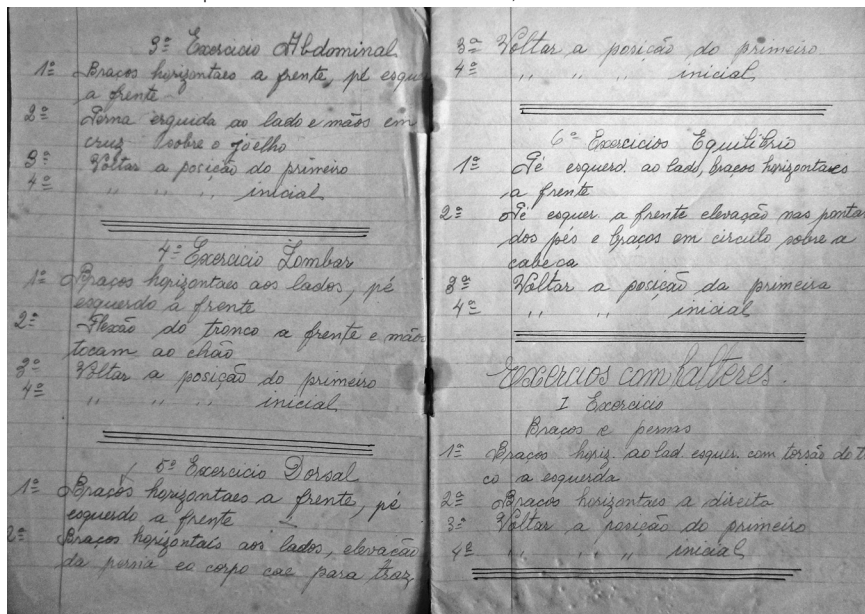 3º Exercicio Abdominal
1º Braços horizontaes a frente, pé esque
a frente
2º Perna erguida ao lado e mãos em
cruz sobre o joelho
3º Voltar a posição do primeiro
4º ,, ,, ,, inicial
4º Exercicio Lombar
1º Braços horizontaes aos lados, pé
esquerdo a frente
2º Flexão do tronco a frente e mãos
tocam ao chão
3º Voltar a posição do primeiro
4º ,, ,, ,, inicial
5º Exercicio Dorsal
1º Braços horizontaes a frente, pé
esquerdo a frente
2º Braços horizontais aos lados, elevação
da perna eo corpo cae para traz
3º Voltar a posição do primeiro
4º ,, ,, ,, inicial
6º Exercicios Equilibrio
1º Pé esquerd. ao lado, braços horizontaes
a frente
2º Pé esquer. a frente elevação nas pontas
dos pés e braços em circulo sobre a
cabeça
3º Voltar a posição da primeira
4º ,, ,, inicial
Exercios com halteres.
I Exercicio
Braços e pernas
1º Braços horiz. ao lad. esquer. com torsão do t
co a esquerda
2º Braços horizontaes a direita
3º Voltar a posição do primeiro
4º ,, ,, ,, inicial